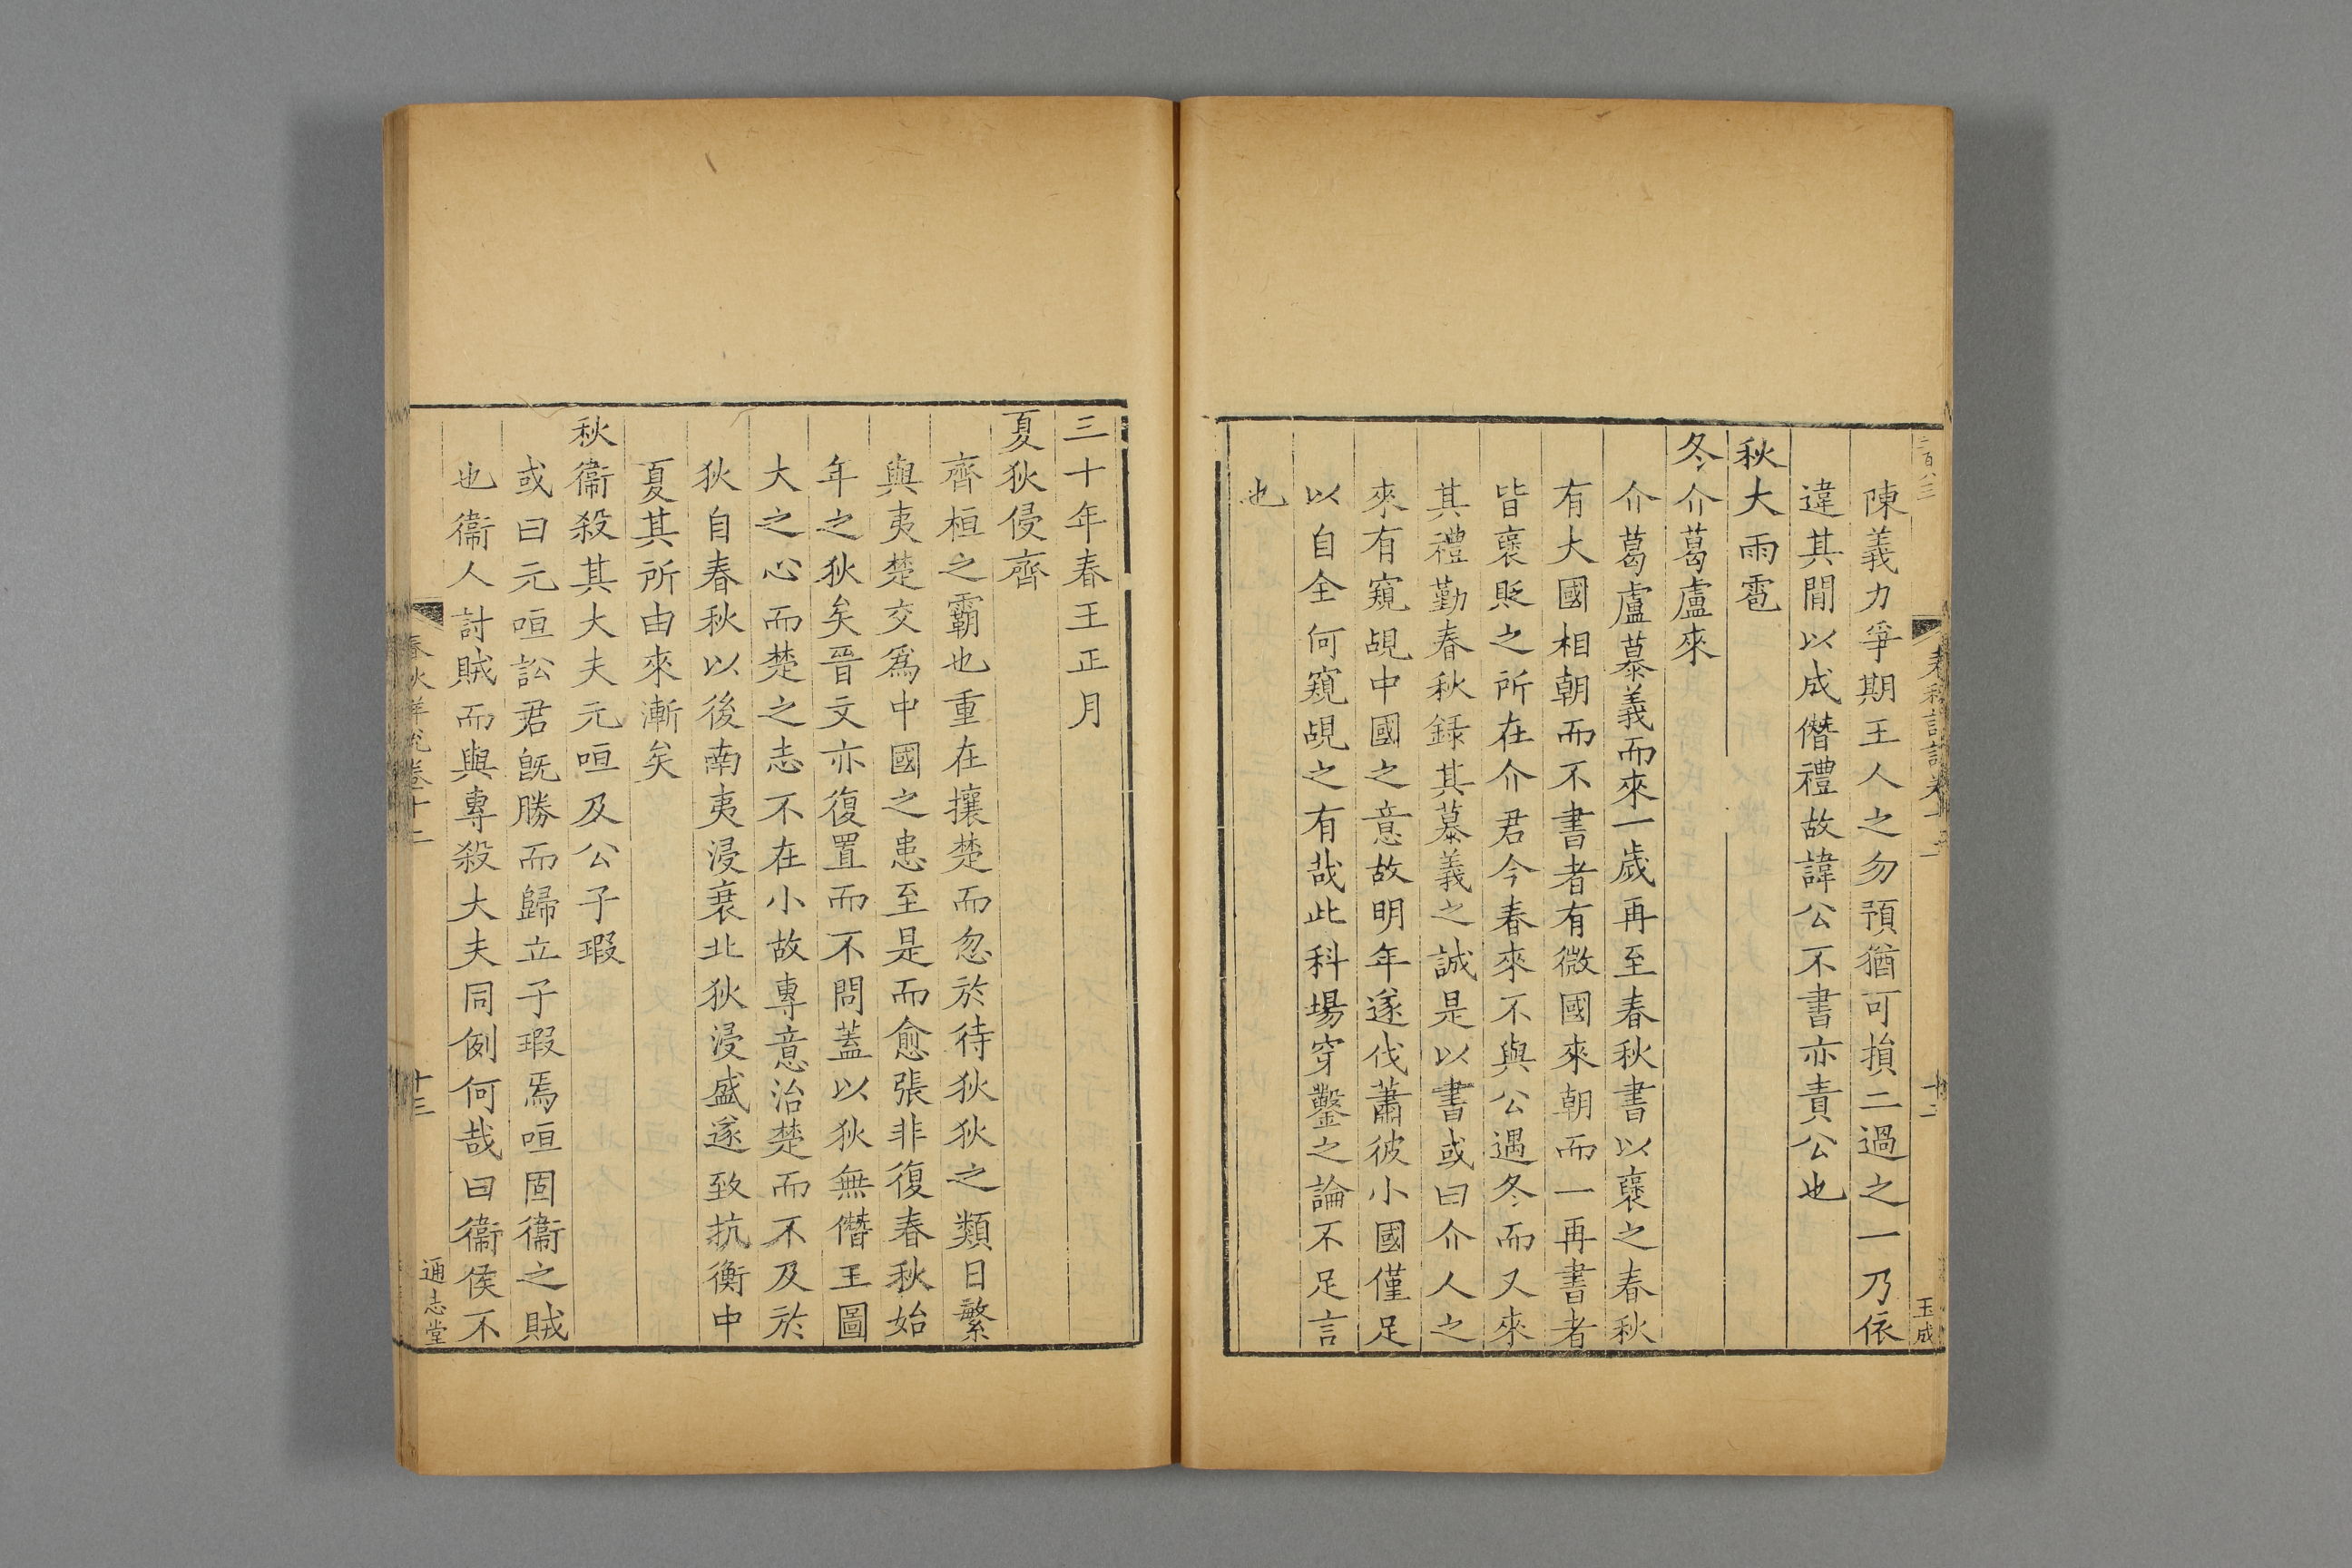 陳義力爭期王人之勿預猶可損二過之一乃依
違其間以成僭禮故諱公不書亦責公也
秋大雨雹
冬介葛盧來
介葛盧慕義而來一歲再至春秋書以襃之春秋
有大國相朝而不書者有微國來朝而一再書者
皆襃貶之所在介君今春來不與公遇冬而又來
其禮勤春秋録其慕義之誠是以書或曰介人之
來有窺覘中國之意故明年遂伐蕭彼小國僅足
以自全何窺覘之有哉此科場穿鑿之論不足言
也
十二
玉成
三十年春王正月
夏狄侵齊
齊桓之霸也重在攘楚而忽於待狄狄之類日繁
與夷楚交爲中國之患至是而愈張非復春秋始
年之狄矣晉文亦復置而不問蓋以狄無僭王圖
大之心而楚之志不在小故專意治楚而不及於
狄自春秋以後南夷浸衰北狄浸盛遂致抗衡中
夏其所由來漸矣
秋衞殺其大夫元咺及公子瑕
或曰元咺訟君旣勝而歸立子瑕焉咺固衞之賊
也衞人討賊而與專殺大夫同例何哉曰衞侯不
春秋詳說卷十二
十三
通志堂